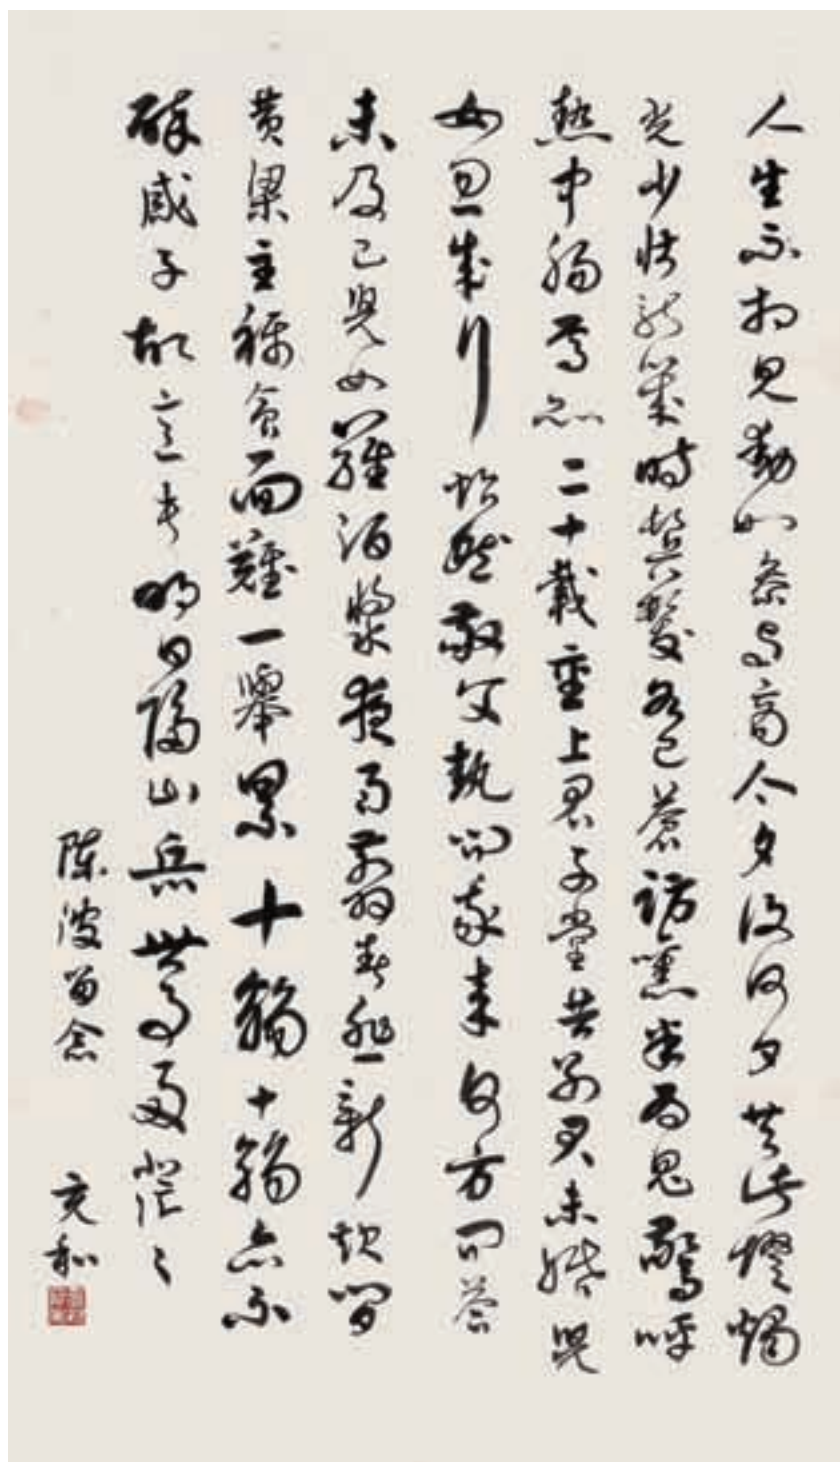 人生不相見動如參與商今夕復何夕共此燈燭
光少壯能幾時鬢髮各已蒼訪舊半為鬼驚呼
熱中腸焉知二十載重上君子堂昔別君未婚兒
女忽成行怡然敬父執問我來何方問答
未及已兒女羅酒漿夜雨翦春韭新炊間
黃粱主稱會面難一舉累十觴十觴亦不
醉感子故意長明日隔山岳世事兩茫々
陳波留念 充和